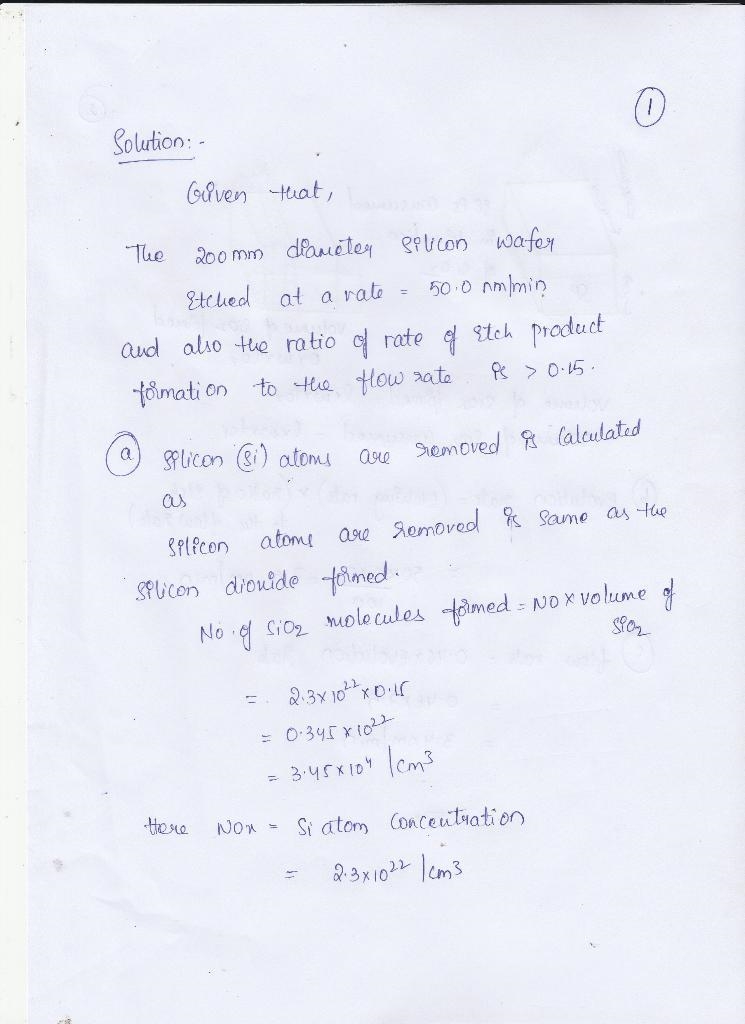 1
Solution:-
Given that,
The 200mm diameter silicon wafer
Etched at a rate = 50.0 nm/min
and also the ratio of rate of Etch product
formation to the flow rate is > 0.15.
(a) Silicon (Si) atoms are removed is Calculated
as
Silicon atoms are removed is Same as the
Silicon dioxide formed.
No. of SiO2 molecules formed = NO x volume of
SiO2
= 2.3x10^22 x 0.15
= 0.345 x 10^22
= 3.45 x 10^4 /cm^3
Here NOx = Si atom Concentration
= 2.3x10^22 /cm3